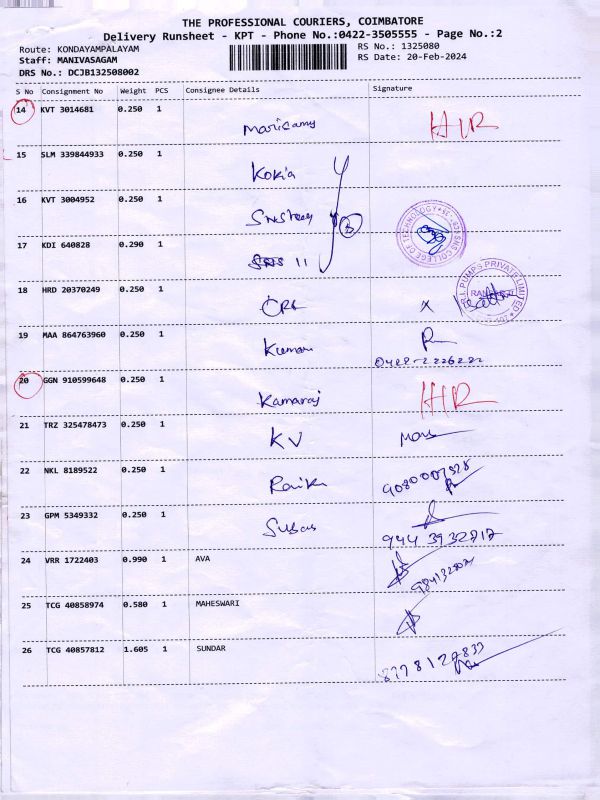 THE PROFESSIONAL COURIERS, COIMBATORE
Delivery Runsheet - KPT - Phone No.:0422-3505555 - Page No.:2
Route: KONDAYAMPALAYAM
RS No.: 1325080
Staff: MANIVASAGAM
RS Date: 20-Feb-2024
DRS No.: DCJB132508002
S No Consignment No Weight PCS Consignee Details Signature
14 KVT 3014681 0.250 1
HIR
15 SLM 339844933 0.250 1
Kokia
16 KVT 3004952 0.250 1
17 KDI 640828 0.290 1
SNS COLLEGE OF TECHNOLOGY
18 HRD 20370249 0.250 1
PUMPS PRIVATE LIMITED
19 MAA 864763960 0.250 1
20 GGN 910599648 0.250 1
Kamaraj HIR
21 TRZ 325478473 0.250 1
KV
22 NKL 8189522 0.250 1
23 GPM 5349332 0.250 1
Subas
24 VRR 1722403 0.990 1 AVA
25 TCG 40858974 0.580 1 MAHESWARI
26 TCG 40857812 1.605 1 SUNDAR